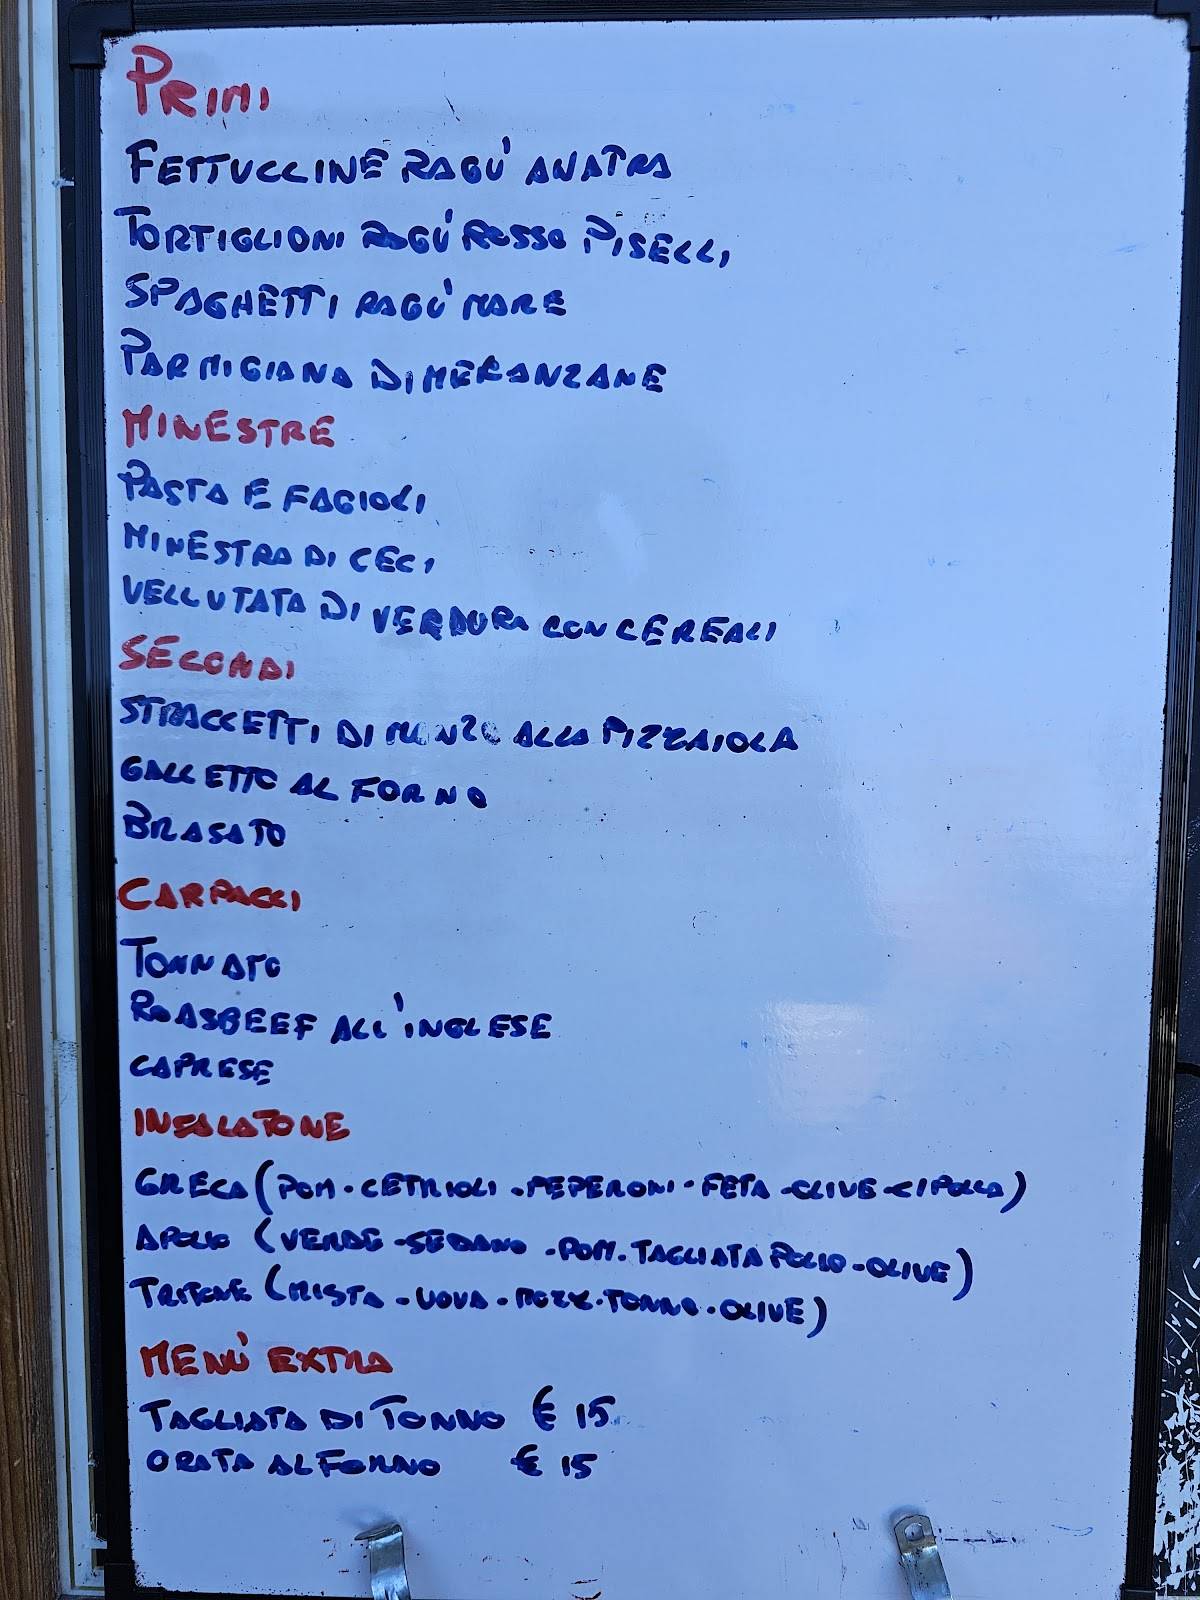 PRIMI
FETTUCCINE RAGU' ANATRA
TORTIGLIONI RAGU' ROSSO PISELLI
SPAGHETTI RAGU' MARE
PARMIGIANA DI MERANZANE
MINESTRE
PASTA E FAGIOLI
MINESTRA DI CECI
VELLUTATA DI VERDURA CON CEREALI
SECONDI
STRACCETTI DI MANZO ALLA PIZZAIOLA
GALLETTO AL FORNO
BRASATO
CARPACCI
TONNATO
ROASBEEF ALL'INGLESE
CAPRESE
INSALATONE
GRECA (POM. CETRIOLI - PEPERONI - FETA - OLIVE - CIPOLLA)
APOLLO (VERDE - SEDANO - POM. TAGLIATA POLLO - OLIVE)
TRITONE (MISTA - UOVA - MOZZ. TONNO - OLIVE)
MENU' EXTRA
TAGLIATA DI TONNO € 15
ORATA AL FORNO € 15